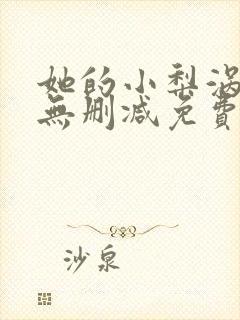 她的小梨涡
無删减免費
沙泉